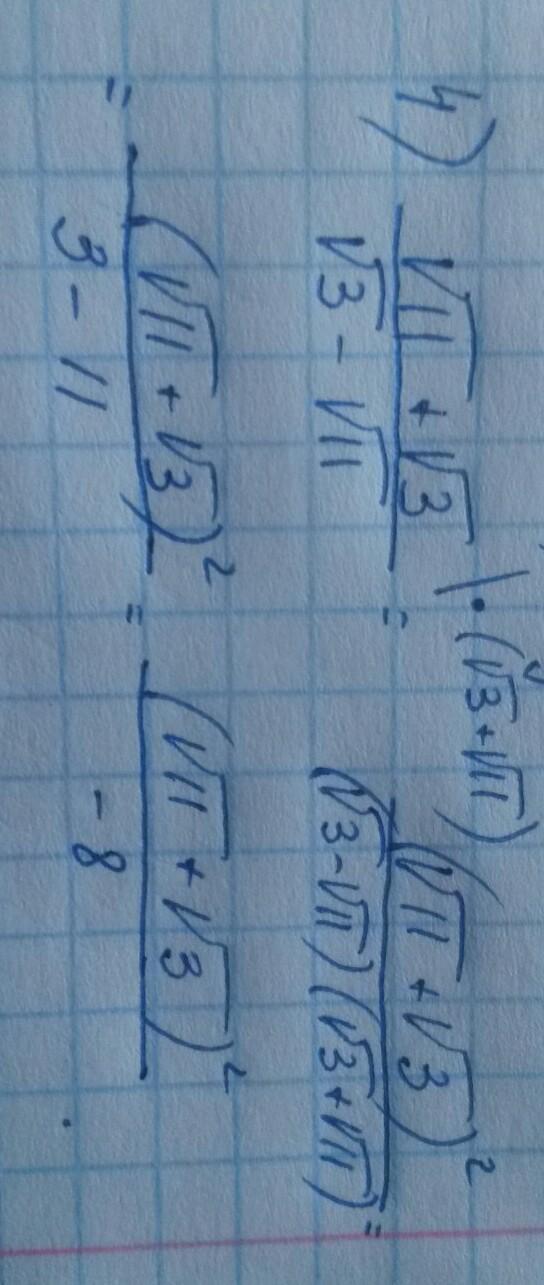 4) (√11 + √3)/(√3 - √11) |·(√3+√11) = (√11 + √3)²/((√3-√11)(√3+√11)) =
= (√11 + √3)²/(3 - 11) = (√11 + √3)²/(-8) .